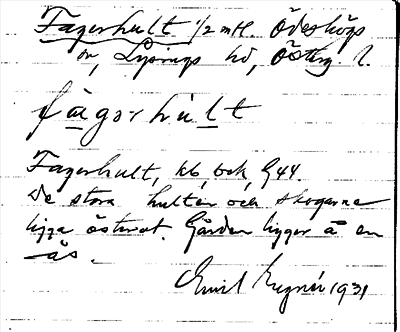 Fagerhult 1/2 mtl. Ödeshögs
sn, Lysings hd, Österg. l.
fàgərhúlt
Fagerhult, kb, bok, G44.
De stora hulten och skogarna
ligga österut. Gården ligger å en
ås.
Emil 1931